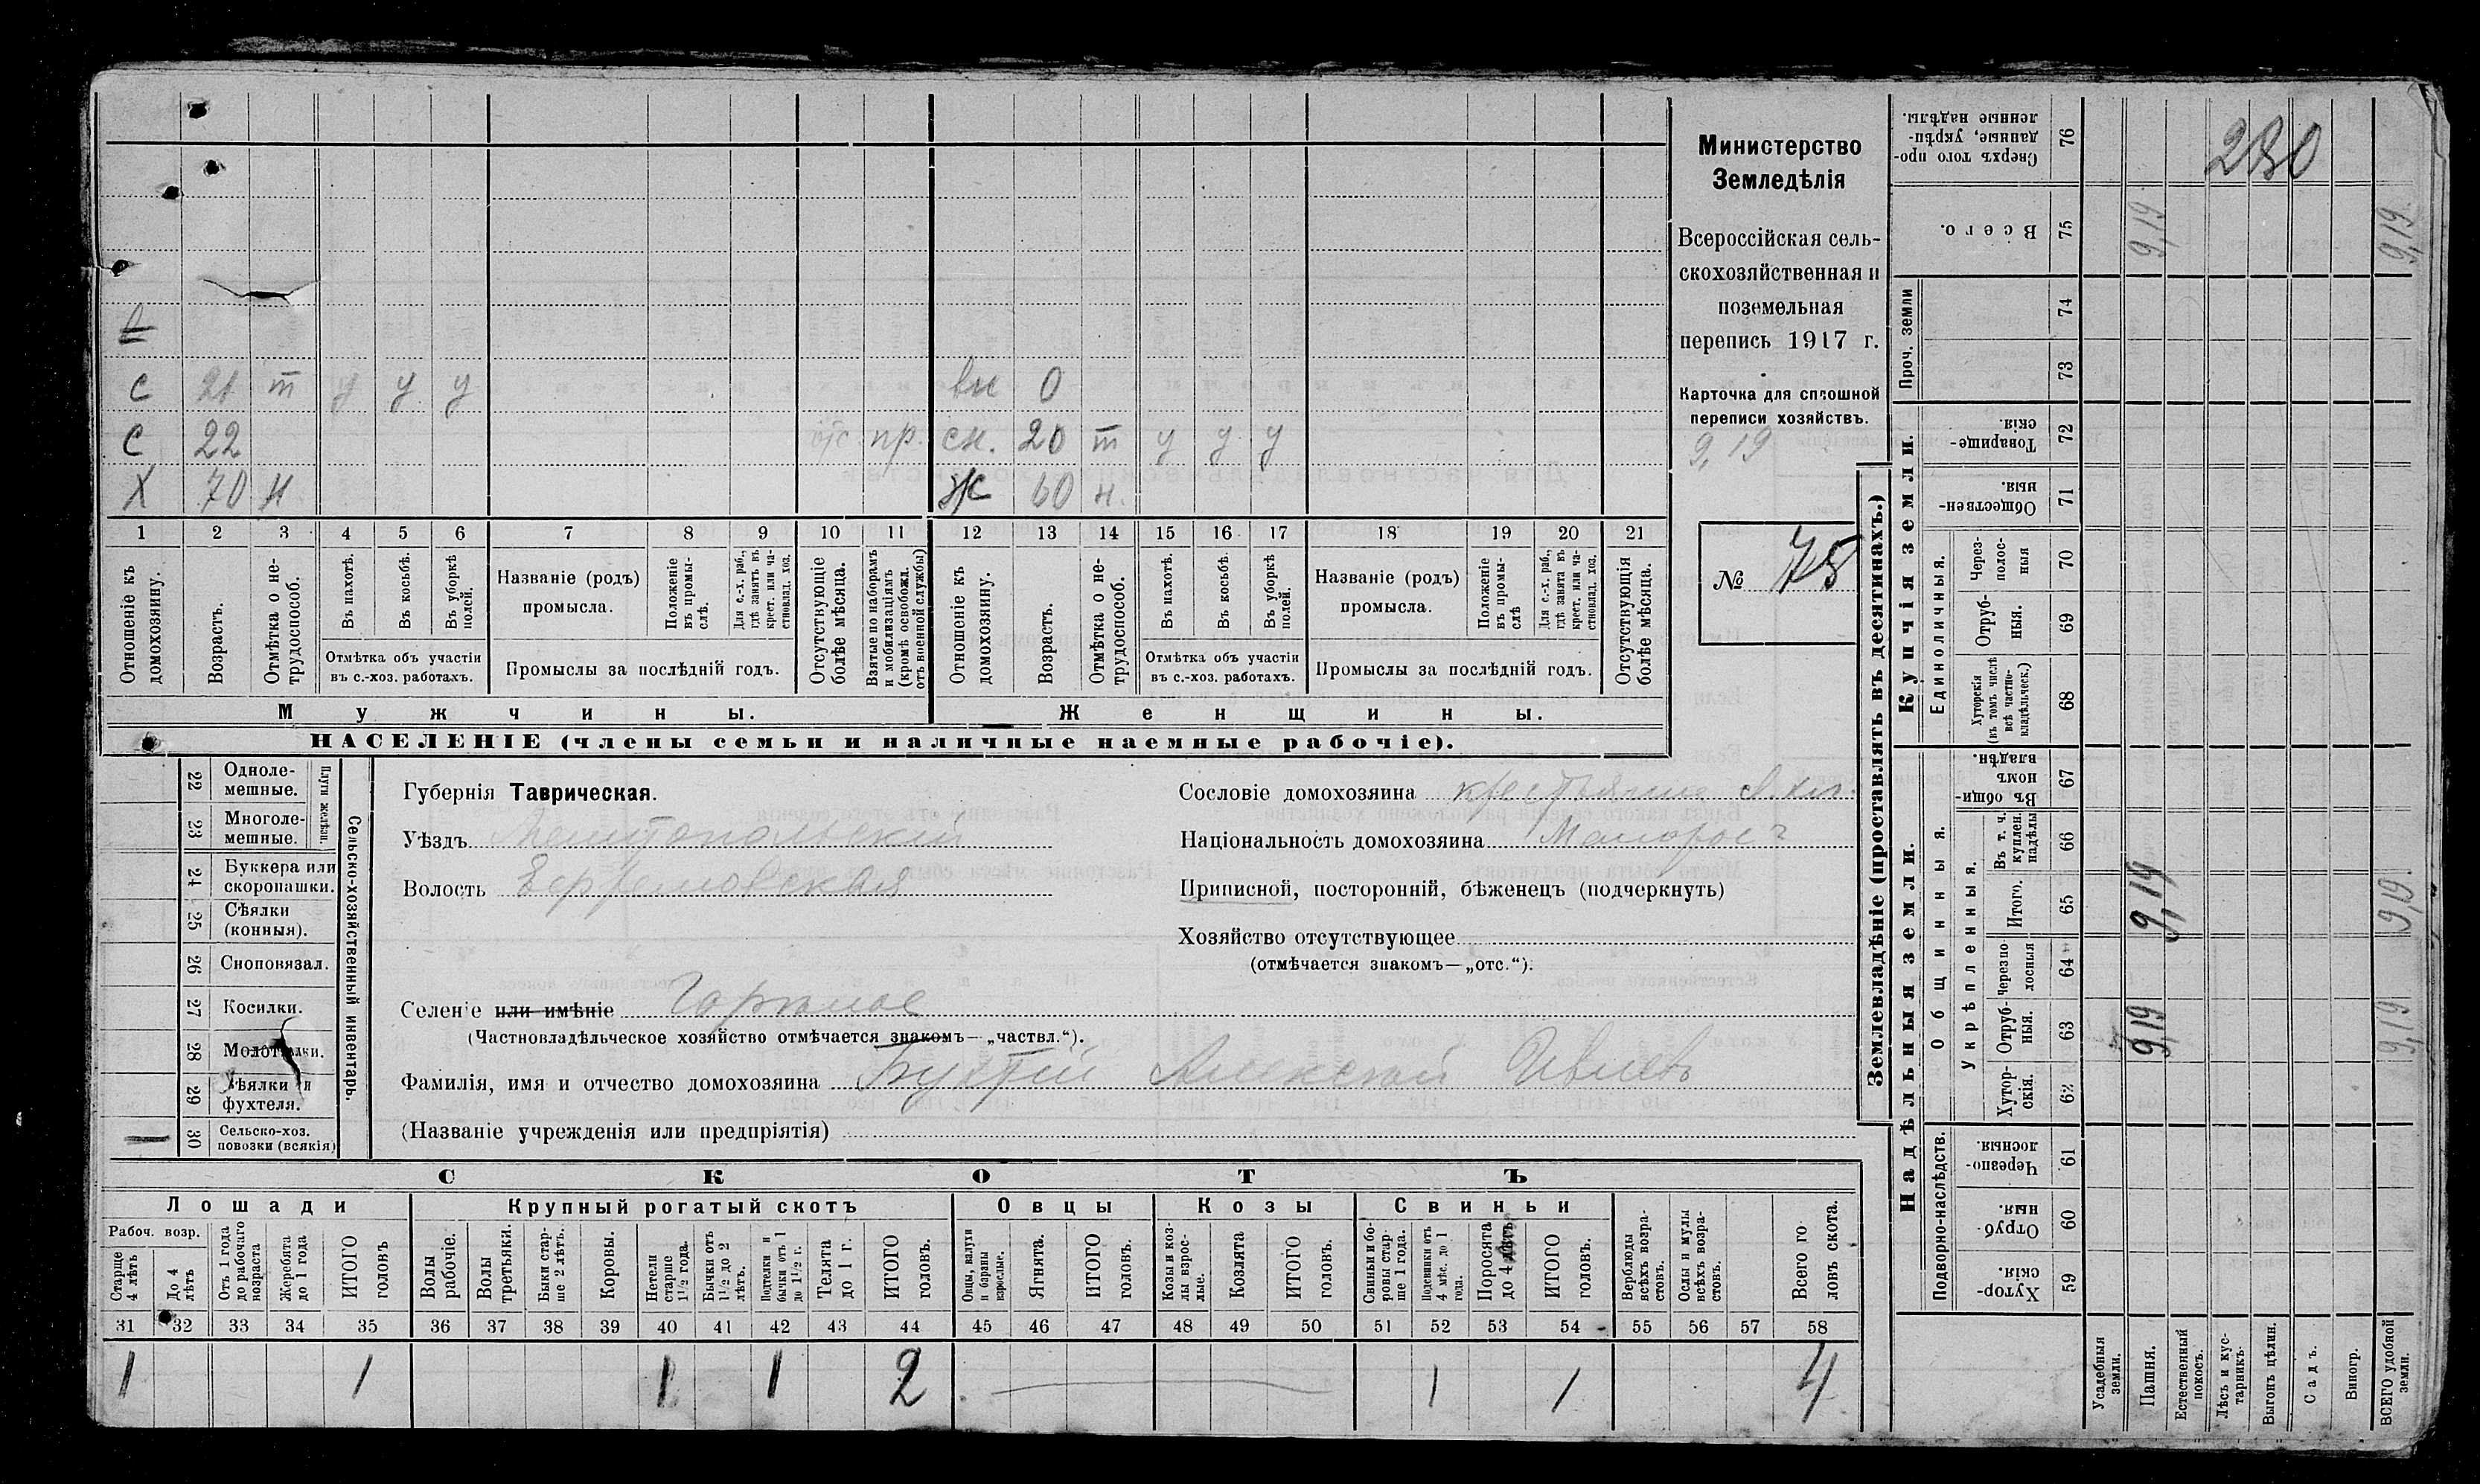 Министерство
Земледѣлія
Всероссійская сель-
скохозяйственная и
поземельная
перепись 1917 г.
Карточка для сплошной
переписи хозяйствъ.
9,19
№ 75
С 21 т у у у вн 0
С 22 отс. пр. сн. 20 т у у у
Х 70 н Ж 60 н.
1 2 3 4 5 6 7 8 9 10 11 12 13 14 15 16 17 18 19 20 21
Отношеніе къ домохозяину.
Возрастъ.
Отмѣтка о не-трудоспособ.
Въ пахотѣ.
Въ косьбѣ.
Въ уборкѣ полей.
Отмѣтка объ участіи въ с.-хоз. работахъ.
Названіе (родъ) промысла.
Положеніе въ промы-слѣ.
Для с.-х. раб., гдѣ занять въ крест. или ча-стновлад. хоз.
Промыслы за послѣдній годъ.
Отсутствующіе болѣе мѣсяца.
Взятые по наборамъ и мобилизаціямъ (кромѣ освобожд. отъ военной службы)
Отношеніе къ домохозяину.
Возрастъ.
Отмѣтка о не-трудоспособ.
Въ пахотѣ.
Въ косьбѣ.
Въ уборкѣ полей.
Отмѣтка объ участіи въ с.-хоз. работахъ.
Названіе (родъ) промысла.
Положеніе въ промы-слѣ
Для с.-х. раб., гдѣ занята въ крест. или ча-стновлад. хоз.
Промыслы за послѣдній годъ.
Отсутствующія болѣе мѣсяца.
Мужчины. Женщины.
НАСЕЛЕНІЕ (члены семьи и наличные наемные рабочіе).
Сельско-хозяйственный инвентарь.
Плуги желѣзн.
22 Одноле-мешные.
23 Многоле-мешные.
24 Буккера или скоропашки.
25 Сѣялки (конныя).
26 Сноповязал.
27 Косилки.
28 Молотилки.
29 Вѣялки и фухтеля.
30 Сельско-хоз. повозки (всякія)
Губернія Таврическая.
Уѣздъ Мелитопольскій
Волость Ефремовская
Селеніе или имѣніе Горькое
(Частновладѣльческое хозяйство отмѣчается знакомъ—„частвл.“).
Фамилія, имя и отчество домохозяина Бухтій Алексѣй Ивлевъ
(Названіе учрежденія или предпріятія)
Сословіе домохозяина крестьянинъ
Національность домохозяина Малоросъ
Приписной, посторонній, бѣженецъ (подчеркнуть)
Хозяйство отсутствующее
(отмѣчается знакомъ—„отс.“).
СКОТЪ
Лошади Крупный рогатый скотъ Овцы Козы Свиньи
Рабоч. возр.
Старше 4 лѣтъ
До 4 лѣтъ
Отъ 1 года до рабочаго возраста
Жеребята до 1 года
ИТОГО головъ
Волы рабочіе.
Волы третьяки.
Быки стар-ше 2 лѣтъ.
Коровы.
Нетели старше 1½ года.
Бычки отъ 1½ до 2 лѣтъ.
Подтелки и бычки отъ 1 до 1½ г.
Телята до 1 г.
ИТОГО головъ.
Овцы, валухи и бараны взрослые.
Ягнята.
ИТОГО головъ.
Козы и коз-лы взрос-лые.
Козлята
ИТОГО головъ.
Свиньи и бо-ровы стар-ше 1 года.
Подсвинки отъ 4 мѣс. до 1 года.
Поросята до 4
ИТОГО головъ.
Верблюды всѣхъ возра-стовъ.
Ослы и мулы всѣхъ возра-стовъ.
Всего го-ловъ скота.
31 32 33 34 35 36 37 38 39 40 41 42 43 44 45 46 47 48 49 50 51 52 53 54 55 56 57 58
1 1 1 1 2 1 1 4
Землевладѣніе (проставлять въ десятинахъ.)
Надѣльныя земли. Купчія земли.
Проч. земли
Сверхъ того про-данные, укрѣп-ленные надѣлы. 76 230
Всего. 75 9,19 9,19
74
73
Товарище-скія. 72
Обществен-ныя. 71
Единоличныя.
Через-полос-ныя 70
Отруб-ныя. 69
Хуторскія (въ томъ числѣ всѣ частно-владѣльческ.) 68
Общинныя.
Въ общин-номъ владѣн. 67
Укрѣпленныя.
Въ т. ч. куплен. надѣлы 66
Итого. 65 9,19 9,19
Черезпо-лосныя 64
Отруб-ныя. 63 9,19 9,19
Хутор-скія. 62
Подворно-наслѣдств.
Черезпо-лосныя. 61
Отруб-ныя. 60
Хутор-скія. 59
Усадебныя земли.
Пашня.
Естественный покосъ.
Лѣсъ и кус-тарникъ.
Выгонъ цѣлин.
Садъ.
Виногр.
ВСЕГО удобной земли.